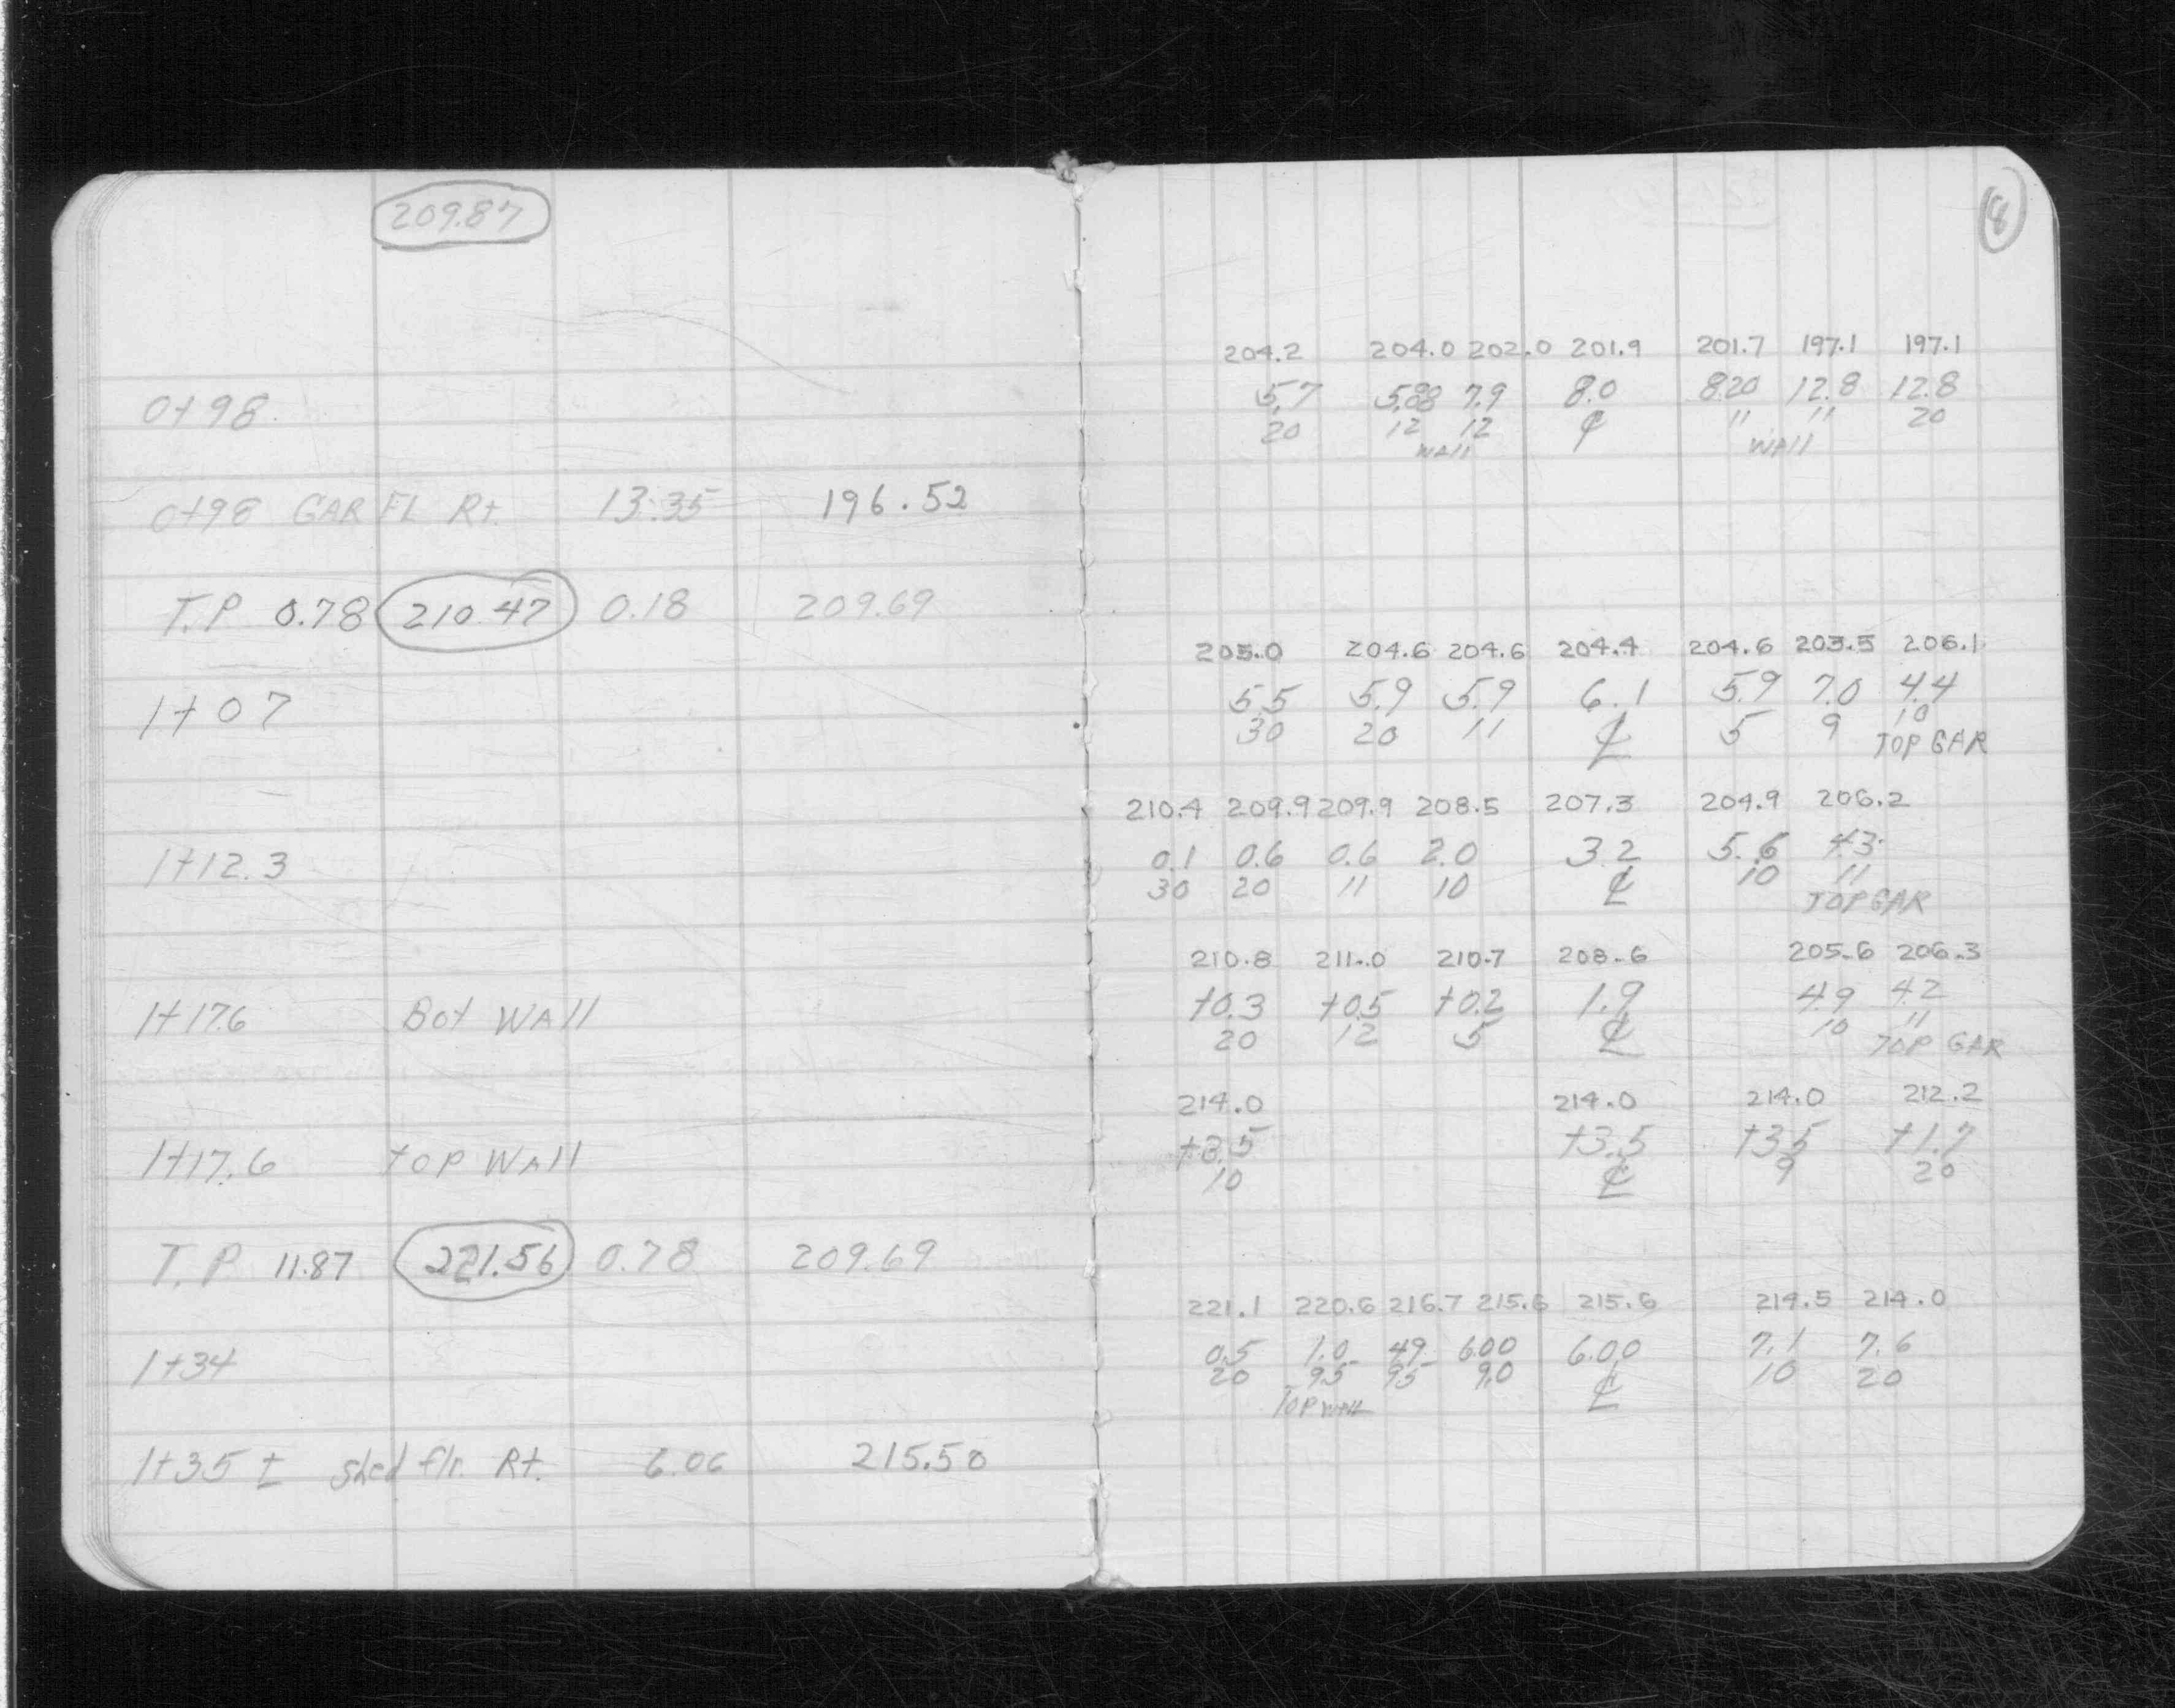 209.87
8
204.2 204.0 202.0 201.9 201.7 197.1 197.1
0+98 5.7 7.9 8.0 8.20 12.8 12.8
20 12 12 ℄ 11 11 20
WAll WAll
0+98 GAR FL Rt. 13.35 196.52
T.P 0.78 210.47 0.18 209.69
205.0 204.6 204.6 204.4 204.6 203.5 206.1
1+07 5.5 5.9 5.9 6.1 5.9 7.0 4.4
30 20 11 ℄ 5 9 10
TOP GAR
210.4 209.9 209.9 208.5 207.3 204.9 206.2
1+12.3 0.1 0.6 0.6 2.0 3.2 5.6 4.3
30 20 11 10 ℄ 10 11
TOP GAR
210.8 211.0 210.7 208.6 205.6 206.3
1+17.6 Bot WAll +0.3 +0.5 +0.2 1.9 4.9 4.2
20 12 5 ℄ 10 11
TOP GAR
214.0 214.0 214.0 212.2
1+17.6 TOP WAll +3.5 +3.5 +3.5 +1.7
10 ℄ 9 20
T.P 11.87 221.56 0.78 209.69
221.1 220.6 216.7 215.6 215.6 214.5 214.0
1+34 0.5 1.0 4.9 6.00 6.00 7.1 7.6
20 9.5 9.5 9.0 ℄ 10 20
TOP WALL
1+35 ± shed flr. Rt. 6.06 215.50